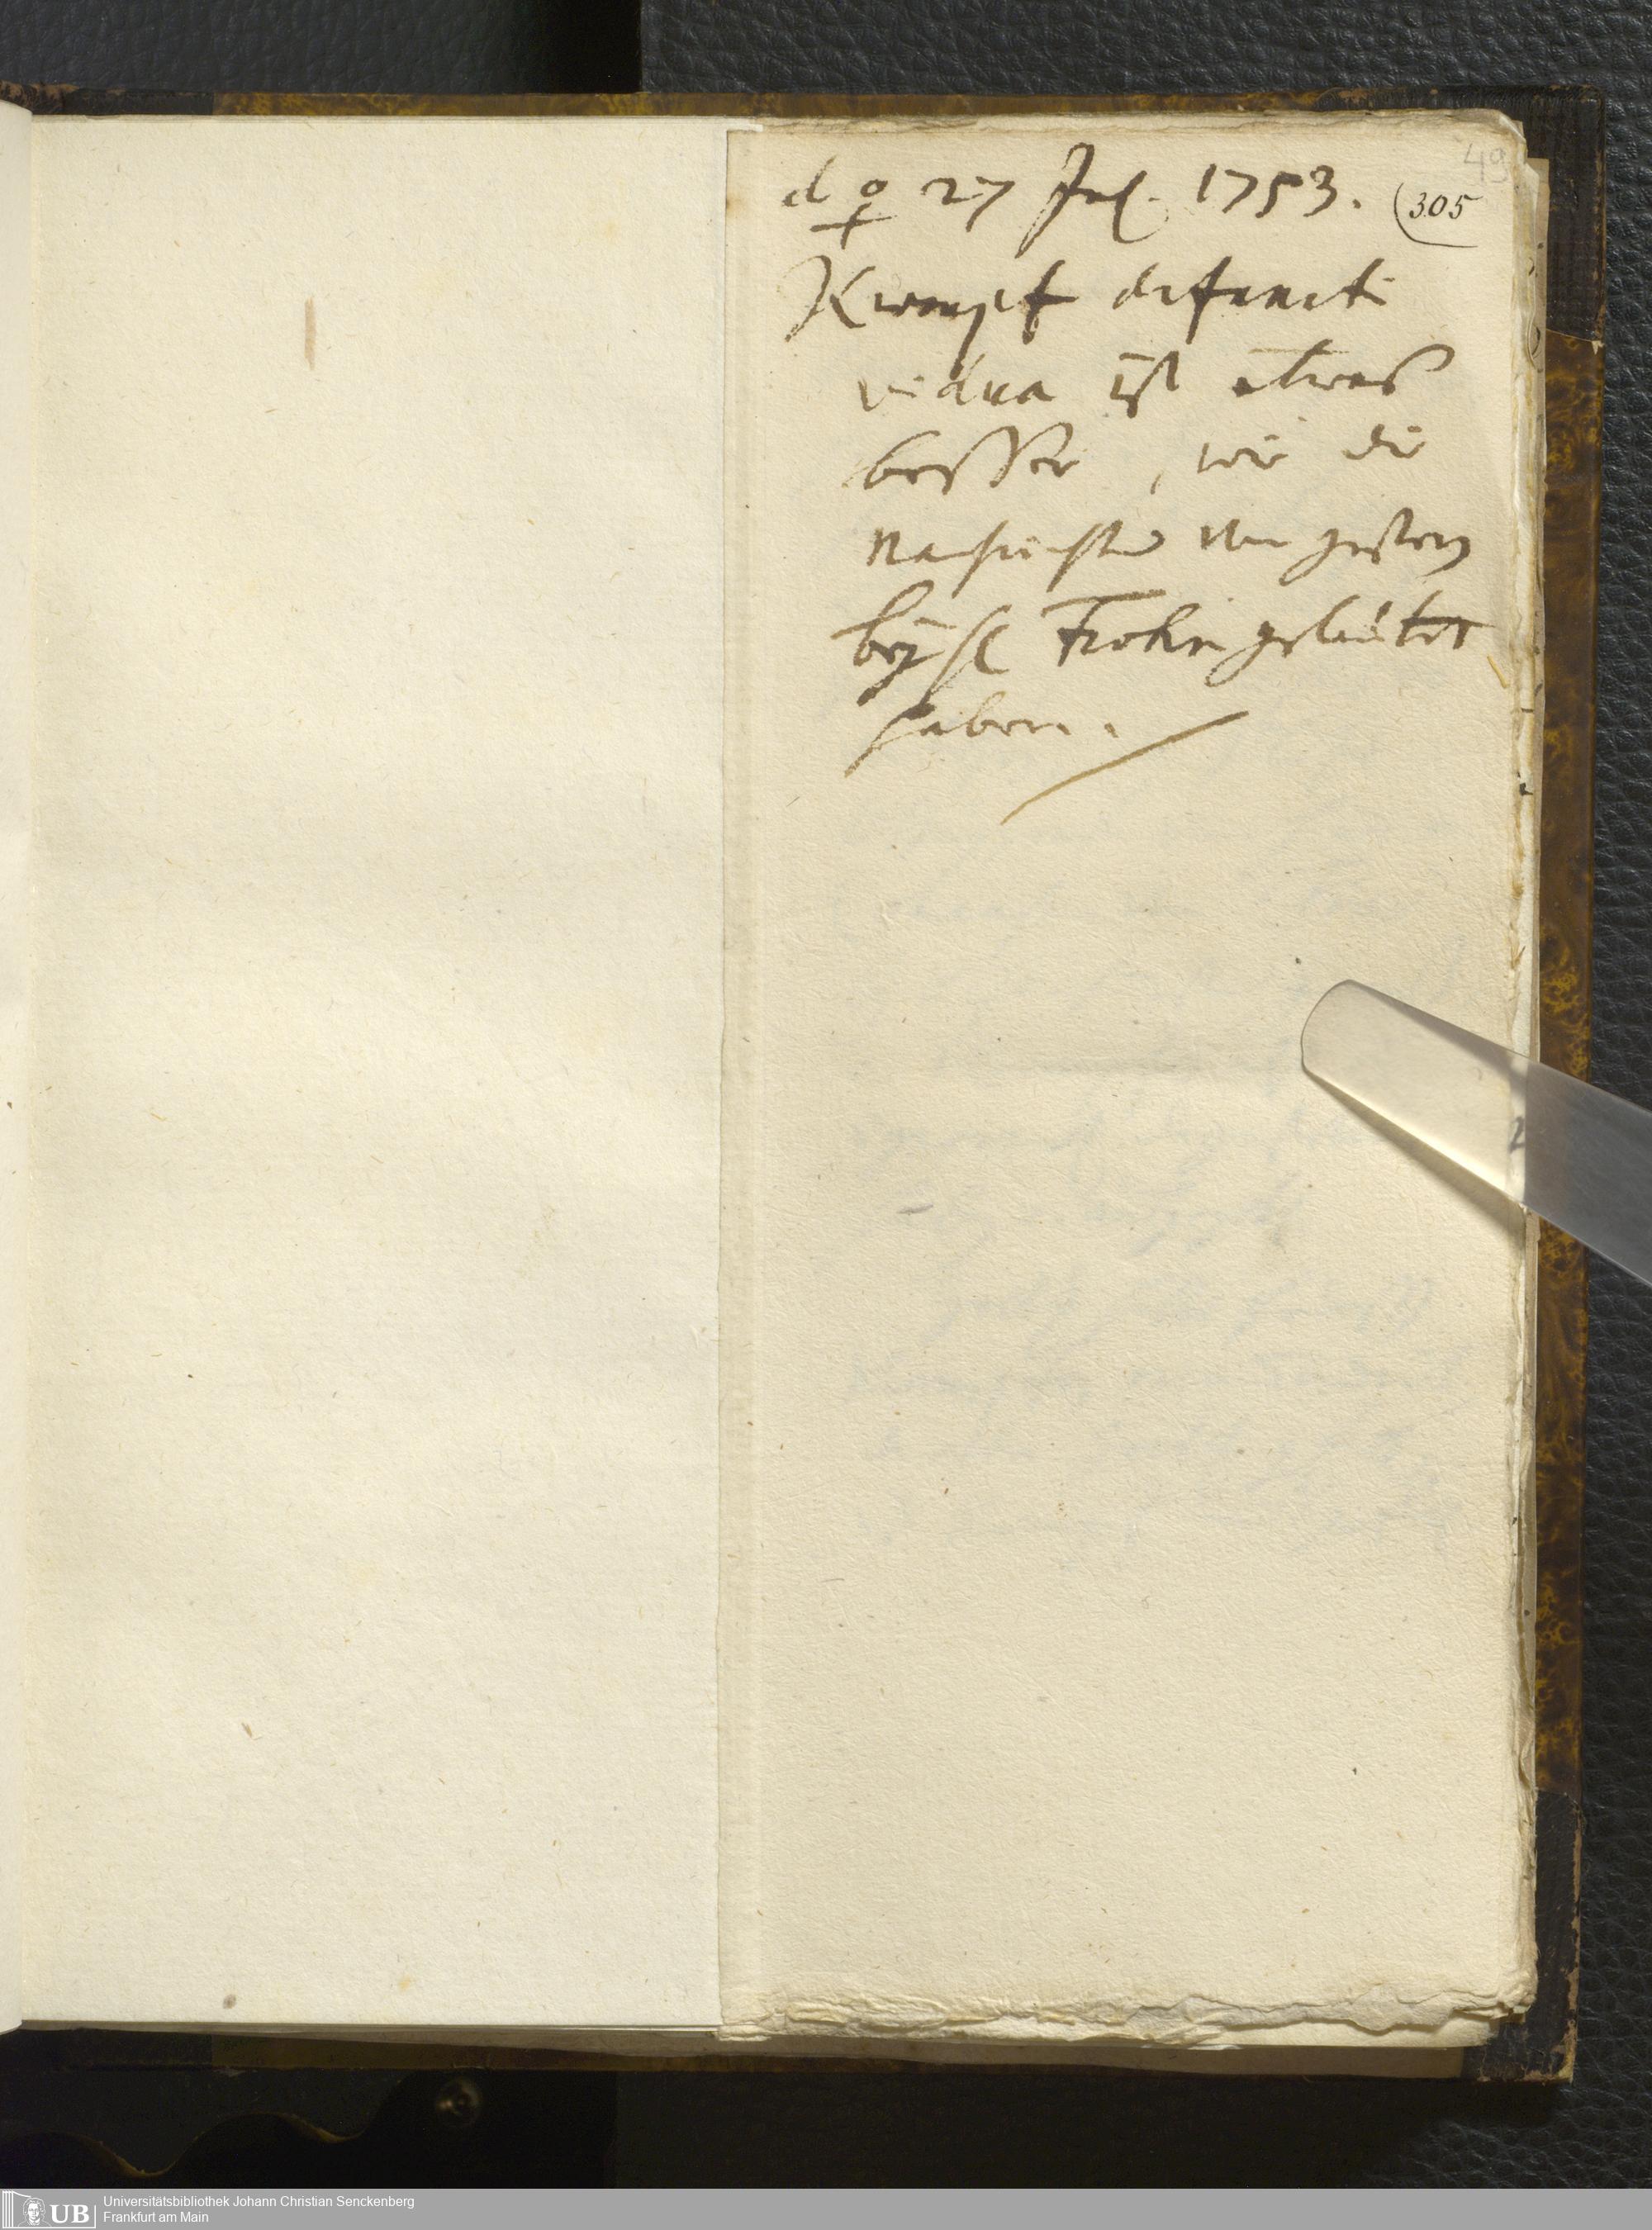 49
d ♀ 27 Jul. 1753. (305
Krempf defuncti
vidua ist etwas
besser, wie die
Nachrichten von gestern
bey H. Frohn gelautet
haben.
UB
Universitätsbibliothek Johann Christian Senckenberg
Frankfurt am Main